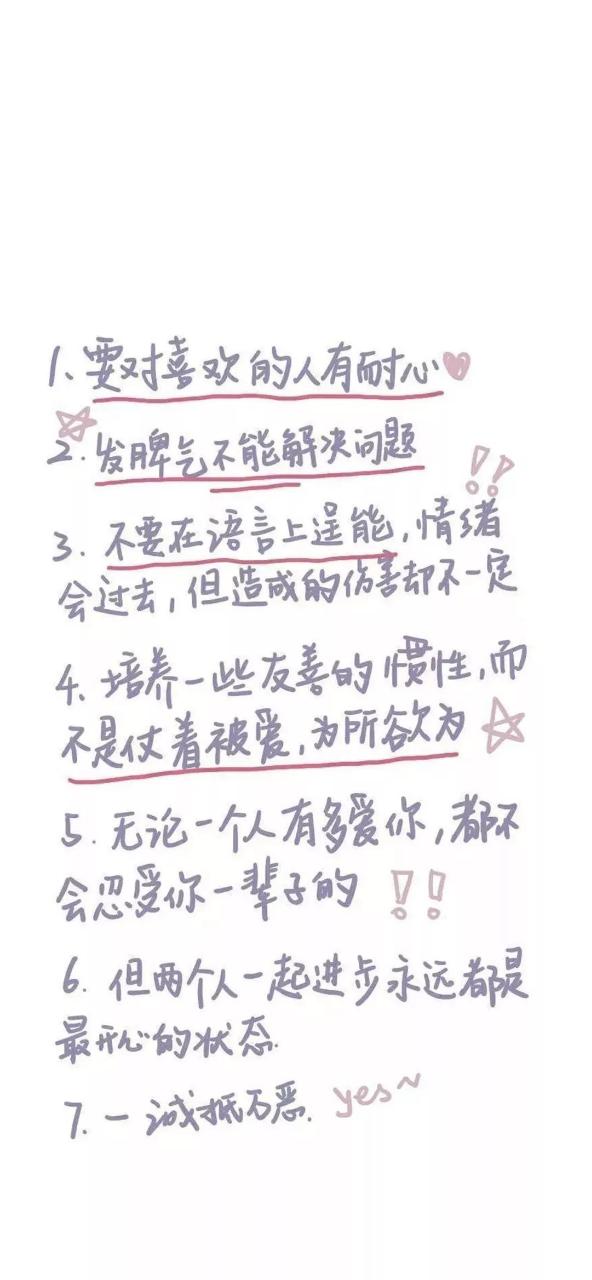 1、要对喜欢的人有耐心
2. 发脾气不能解决问题
!!
3. 不要在语言上逞能,情绪
会过去,但造成的伤害却不一定
4. 培养一些友善的惯性,而
不是仗着被爱,为所欲为
5. 无论一个人有多爱你,都不
会忍受你一辈子的 !!
6. 但两个人一起进步永远都是
最开心的状态.
7. 一诚抵万恶. yes~